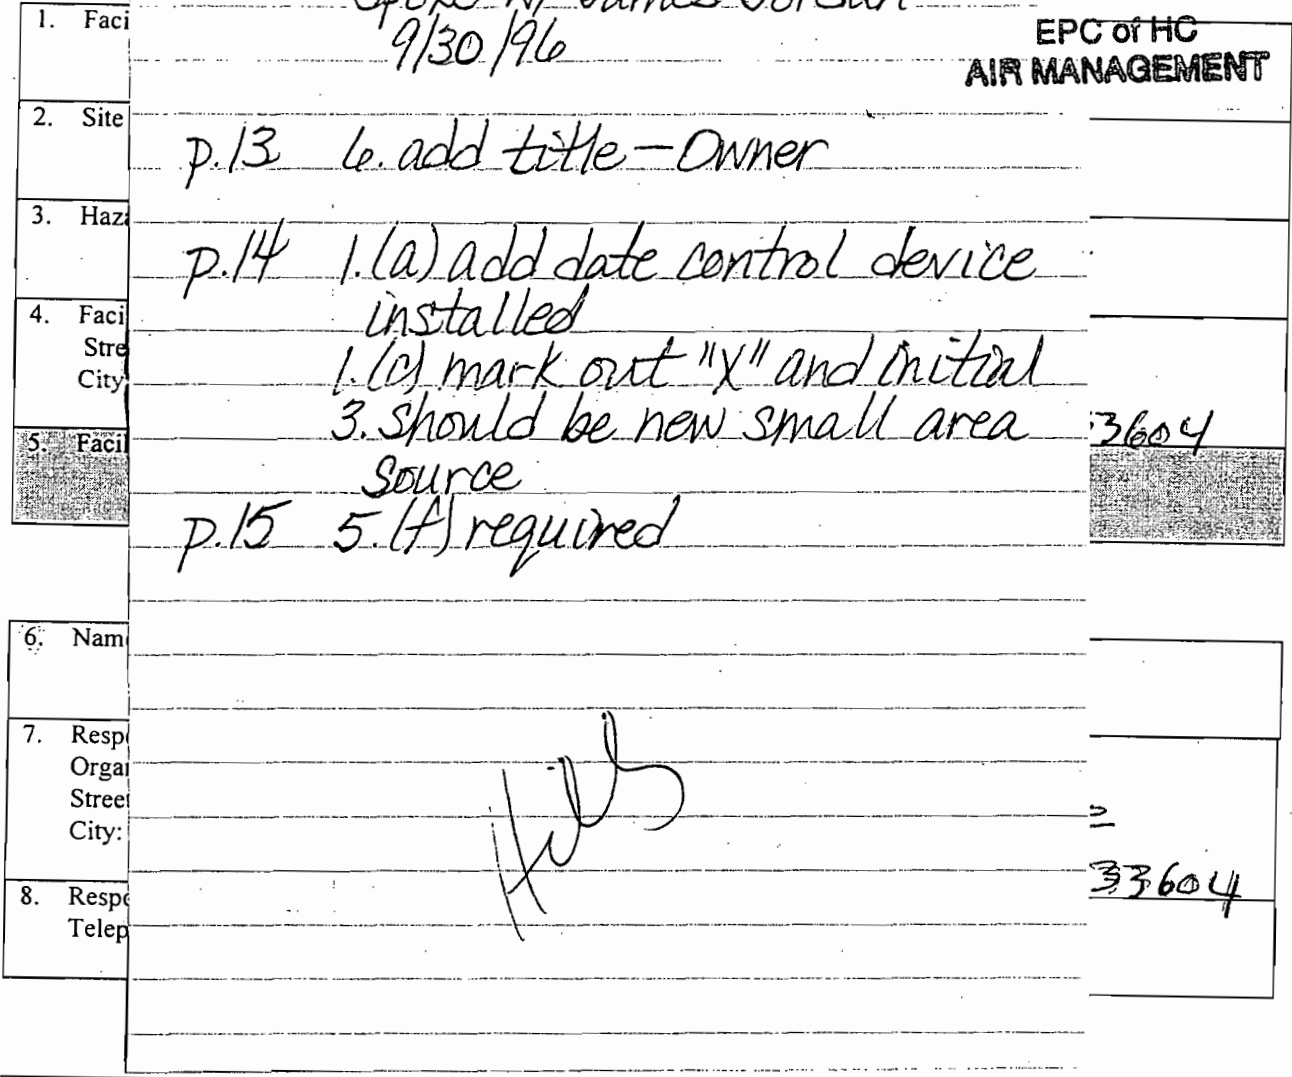 1. Faci
9/30/96
EPC of HC
AIR MANAGEMENT
2. Site
p.13 6. add title - Owner
3. Haza
p.14 1.(a) add date control device
installed
4. Faci
Stre
City
1.(c) mark out "X" and initial
3. should be new small area
source
33604
5. Facil
p.15 5.(f) required
6. Nam
7. Resp
Orga
Street
City:
33604
8. Respo
Telep